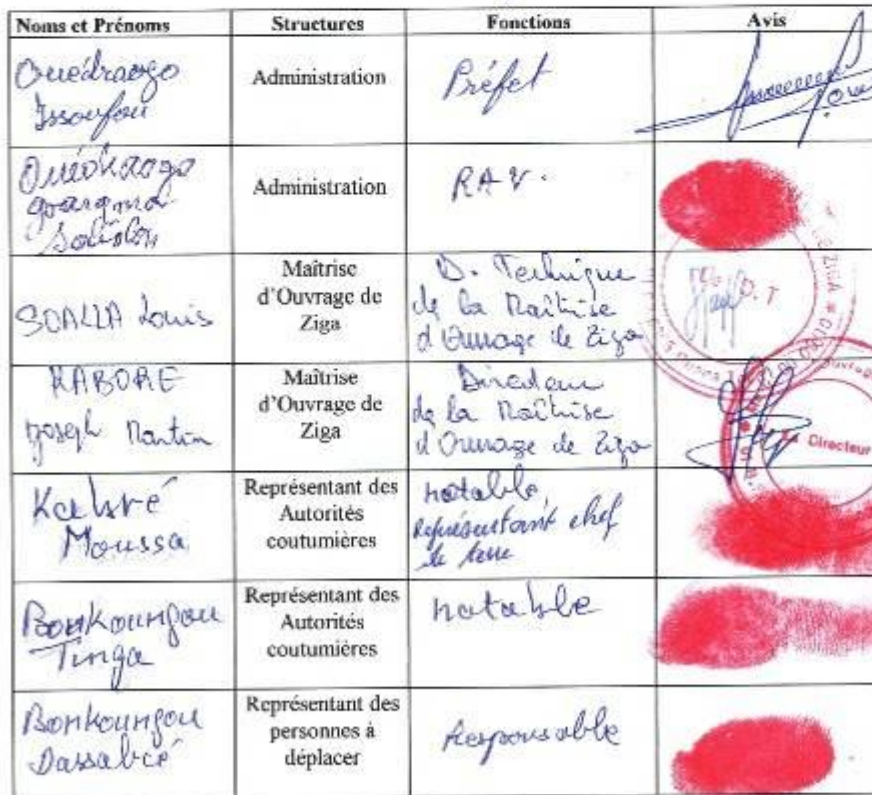 Noms et Prénoms Structures Fonctions Avis
Ouédraogo
Issoufou
Administration
Préfet
Ouédraogo
Administration
RAV.
SOALLA Louis
Maîtrise
d'Ouvrage de
Ziga
D. Technique
de la Maîtrise
d'Ouvrage de Ziga
D.T
KABORE
Joseph Martin
Maîtrise
d'Ouvrage de
Ziga
Directeur
de la Maîtrise
d'Ouvrage de Ziga
Directeur
Kabré
Moussa
Représentant des
Autorités
coutumières
notable,
Représentant chef
de terre
Bonkoungou
Tinga
Représentant des
Autorités
coutumières
notable
Bonkoungou
Dassablé
Représentant des
personnes à
déplacer
Responsable